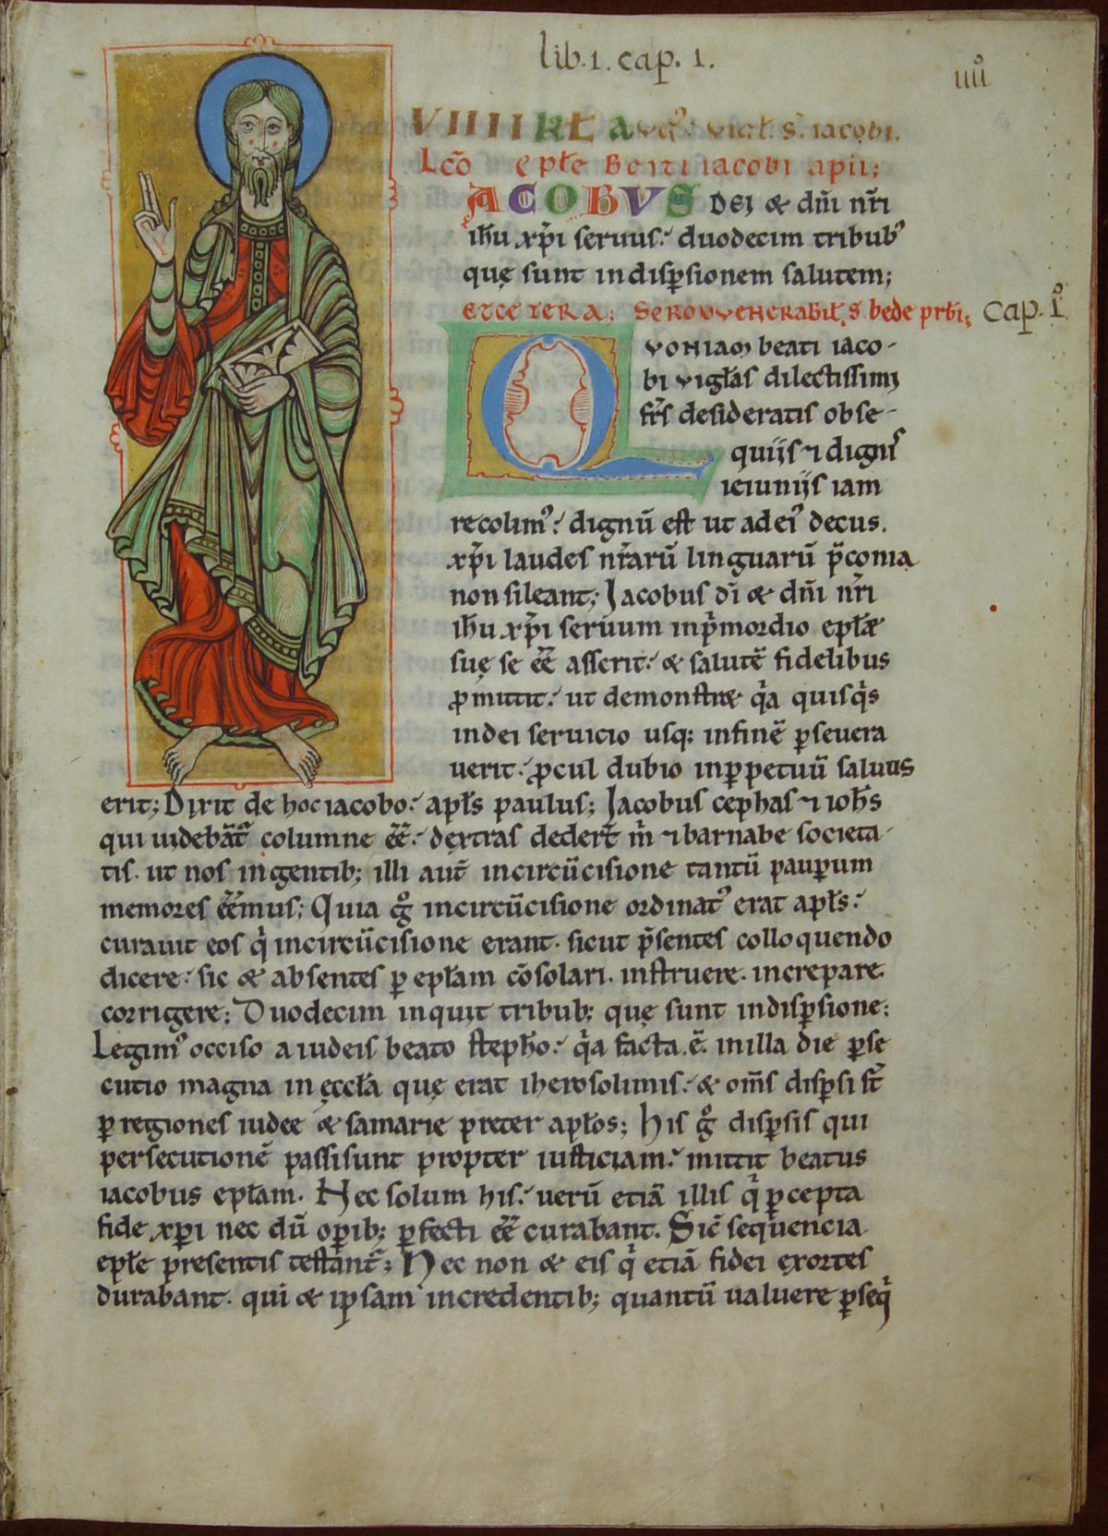 lib. 1. cap. 1.
iiii͛
VIIII KŁ AVGꝰ. VIGŁ. S. IACOBI.
Lc̄o epłe Beati iacobi apłi;
IACOBVS dei & dn̄i nr̄i
ih̄u xp̄i seruus. duodecim tribubꝰ
quę sunt in disꝑsionem salutem;
ETCETERA: SERO VENERABIŁ. S. bede prb̄i; Cap. I͛
QVONIAM beati iaco-
bi vigłas dilectissimi
fr̄s desideratis obse-
quiis ⁊ dignis
ieiuniis iam
recolimꝰ. dignū est ut ad eiꝰ decus.
xp̄i laudes nr̄arū linguarū p̄conia
non sileant; Iacobus dı̄ & dn̄i nr̄i
ih̄u xp̄i seruum in pͥmordio epłæ
suę se eē̄ asserit. & salutē fidelibus
ꝓmittit. ut demonstret qͥa quisqͥs
in dei seruicio usq; in finē ꝑseuera
uerit. ꝓcul dubio in ꝑpetuū saluus
erit; Dixit de hoc iacobo. apłs paulus; Iacobus cephas ⁊ ioħs
qui uidebāt᷑ columne eē̄. dextras dedert̄ m̄ ⁊ barnabe societa-
tis. ut nos in gentib; illi aut̄ in circūcisione tantū pauꝑum
memores eē̄mus; Quia gͦ in circūcisione ordinatꝰ erat apłs.
curauit eos qͥ in circūcisione erant. sicut p̄sentes colloquendo
dicere. sic & absentes ꝑ epłam cōsolari. instruere. increpare.
corrigere; Duodecim inquit tribub; quę sunt in disꝑsione;
Legimꝰ occiso a iudeis beato stepħo. qͥa facta .ē. in illa die ꝑse
cutio magna in ęccła quę erat iherosolimis. & om̄s disꝑsi st̄
ꝑ regiones iudee & samarie preter apłos; His gͦ disꝑsis qui
persecutionē passi sunt propter iusticiam. mittit beatus
iacobus epłam. Nec solum his. uerū etiā illis qͥ ꝑcepta
fide xp̄i nec dū oꝑib; ꝑfecti eē̄ curabant. Sic̄ sequencia
epłe presentis testant᷑; Nec non & eis qͥ etiā fidei exortes
durabant. qui & ipsam in credentib; quantū ualuere ꝑseqͥ